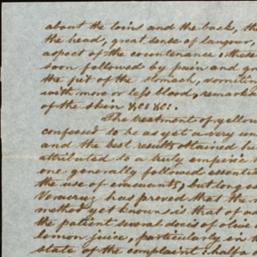 about the loins and the back, th
the head, great sense of langour,
aspect of the countenance: these
soon followed by pain and
the pit of the stomach, vomitin
with more or less blood, remark
of the skin &c &c.
The treatment of yellow
confessed to be as yet a very un
and the best results attained ha
attributed to a truly empiric
one generally followed essential
the use of emunants, but long e
Veracruz has proved that the
method yet known is that of ad
the patient several doses of olive
lemon juice, particularly in
state of the complaint: half a